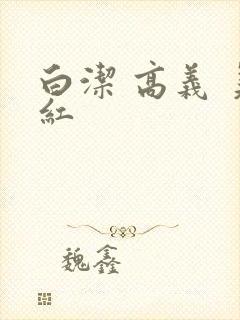 白潔 高義
紅
魏鑫